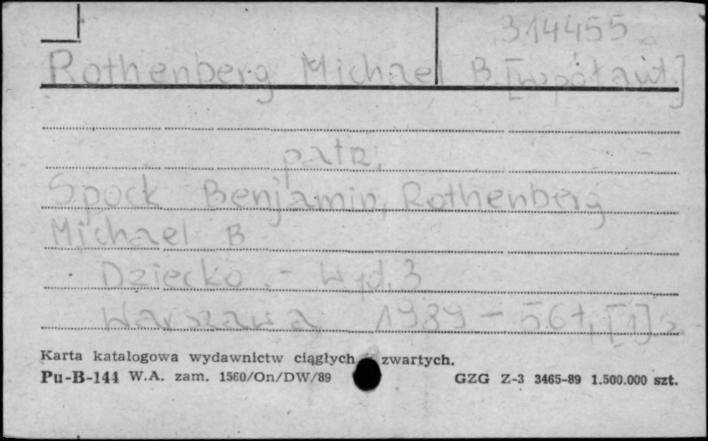 314455
Rothenberg Michael B. [współaut.]
patrz,
Spock Benjamin, Rothenberg
Michael B
Dziecko. - Wyd. 3
Warszawa 1989 - 567, [1] s.
Karta katalogowa wydawnictw ciągłych zwartych.
Pu-B-144 W.A. zam. 1560/On/DW/89 GZG Z-3 3465-89 1.500.000 szt.